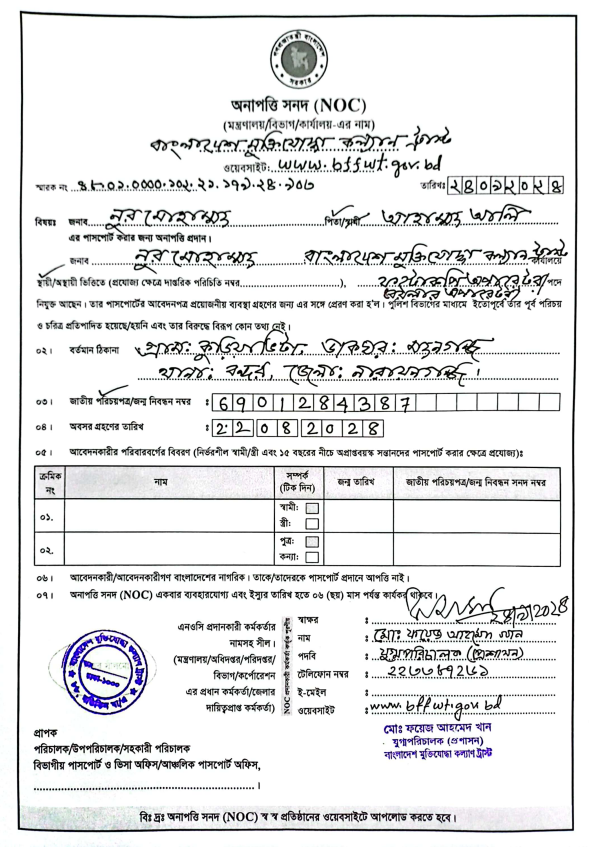 গণপ্রজাতন্ত্রী বাংলাদেশ সরকার
অনাপত্তি সনদ (NOC)
(মন্ত্রণালয়/বিভাগ/কার্যালয়-এর নাম)
বাংলাদেশ মুক্তিযোদ্ধা কল্যাণ ট্রাস্ট
ওয়েবসাইট: www.bffwt.gov.bd
স্মারক নং ৪৮.০১.০০০০.১০২.২১.১৭৭.২৪.১০৬ তারিখঃ ২৪০৯২০২৪
বিষয়ঃ জনাব নুর মোহাম্মাদ পিতা/স্বামী আহাম্মাদ আলি
এর পাসপোর্ট করার জন্য অনাপত্তি প্রদান।
জনাব নুর মোহাম্মাদ বাংলাদেশ মুক্তিযোদ্ধা কল্যাণ ট্রাস্ট কার্যালয়ে
স্থায়ী/অস্থায়ী ভিত্তিতে (প্রযোজ্য ক্ষেত্রে দাপ্তরিক পরিচিতি নম্বর....................), ফটোকপি অপারেটর পদে
নিযুক্ত আছেন। তার পাসপোর্টের আবেদনপত্র প্রয়োজনীয় ব্যবস্থা গ্রহণের জন্য এর সঙ্গে প্রেরণ করা হ'ল। পুলিশ বিভাগের মাধ্যমে ইতোপূর্বে তার পূর্ব পরিচয়
ও চরিত্র প্রতিপাদিত হয়েছে/হয়নি এবং তার বিরুদ্ধে বিরূপ কোন তথ্য নেই।
০২। বর্তমান ঠিকানা গ্রাম: কুড়িয়াভিটা, ডাকঘর: মদনগঞ্জ
থানা: বন্দর, জেলা: নারায়নগঞ্জ।
০৩। জাতীয় পরিচয়পত্র/জন্ম নিবন্ধন নম্বর : 6901284387
০৪। অবসর গ্রহণের তারিখ : 22082028
০৫। আবেদনকারীর পরিবারবর্গের বিবরণ (নির্ভরশীল স্বামী/স্ত্রী এবং ১৫ বছরের নীচে অপ্রাপ্তবয়স্ক সন্তানদের পাসপোর্ট করার ক্ষেত্রে প্রযোজ্য)ঃ
ক্রমিক নং নাম সম্পর্ক (টিক দিন) জন্ম তারিখ জাতীয় পরিচয়পত্র/জন্ম নিবন্ধন সনদ নম্বর
০১. স্বামী:
স্ত্রী:
০২. পুত্র:
কন্যা:
০৬। আবেদনকারী/আবেদনকারীগণ বাংলাদেশের নাগরিক। তাকে/তাদেরকে পাসপোর্ট প্রদানে আপত্তি নাই।
০৭। অনাপত্তি সনদ (NOC) একবার ব্যবহারযোগ্য এবং ইস্যুর তারিখ হতে ০৬ (ছয়) মাস পর্যন্ত কার্যকর থাকবে।
এনওসি প্রদানকারী কর্মকর্তার
নামসহ সীল।
(মন্ত্রণালয়/অধিদপ্তর/পরিদপ্তর/
বিভাগ/কর্পোরেশন
এর প্রধান কর্মকর্তা/জেলার
দায়িত্বপ্রাপ্ত কর্মকর্তা)
স্বাক্ষর :
নাম : মো: ফয়েজ আহমেদ খান
পদবি : যুগ্মপরিচালক (প্রশাসন)
টেলিফোন নম্বর :
ই-মেইল :
ওয়েবসাইট : www.bffwt.gov.bd
বাংলাদেশ মুক্তিযোদ্ধা কল্যাণ ট্রাস্ট
মোঃ ফয়েজ আহমেদ খান
যুগ্মপরিচালক (প্রশাসন)
বাংলাদেশ মুক্তিযোদ্ধা কল্যাণ ট্রাস্ট
প্রাপক
পরিচালক/উপপরিচালক/সহকারী পরিচালক
বিভাগীয় পাসপোর্ট ও ভিসা অফিস/আঞ্চলিক পাসপোর্ট অফিস,
....................................................।
বিঃ দ্রঃ অনাপত্তি সনদ (NOC) স্ব স্ব প্রতিষ্ঠানের ওয়েবসাইটে আপলোড করতে হবে।